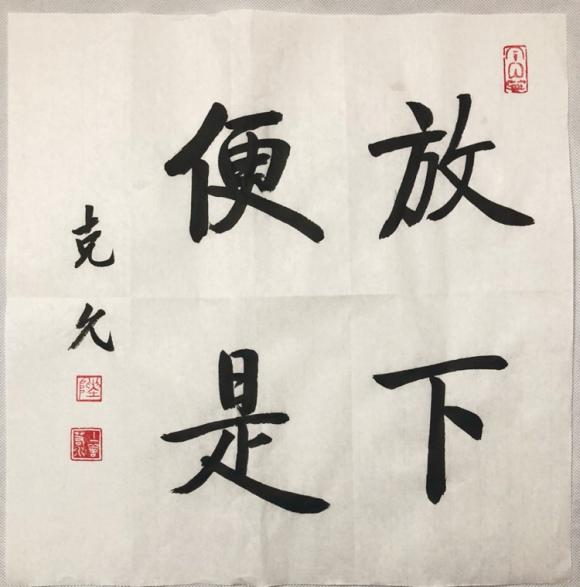 放下
便是
克允